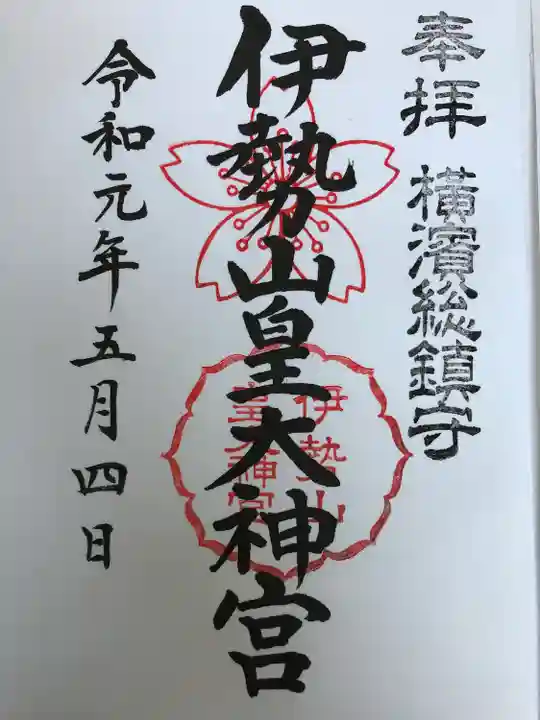 奉拝 橫濱総鎮守
伊勢山皇大神宮
伊勢山
皇大神宮
令和元年五月四日